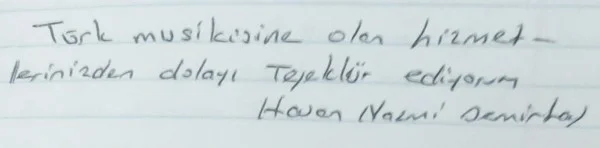 Türk musikisine olan hizmet-
lerinizden dolayı Teşekkür ediyorum
Hasan Nazmi Demirtaş